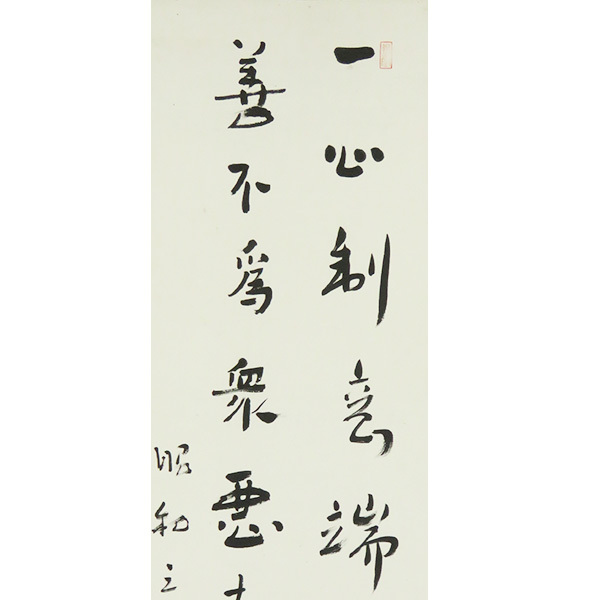 一心制意端
善不爲衆惡
昭和